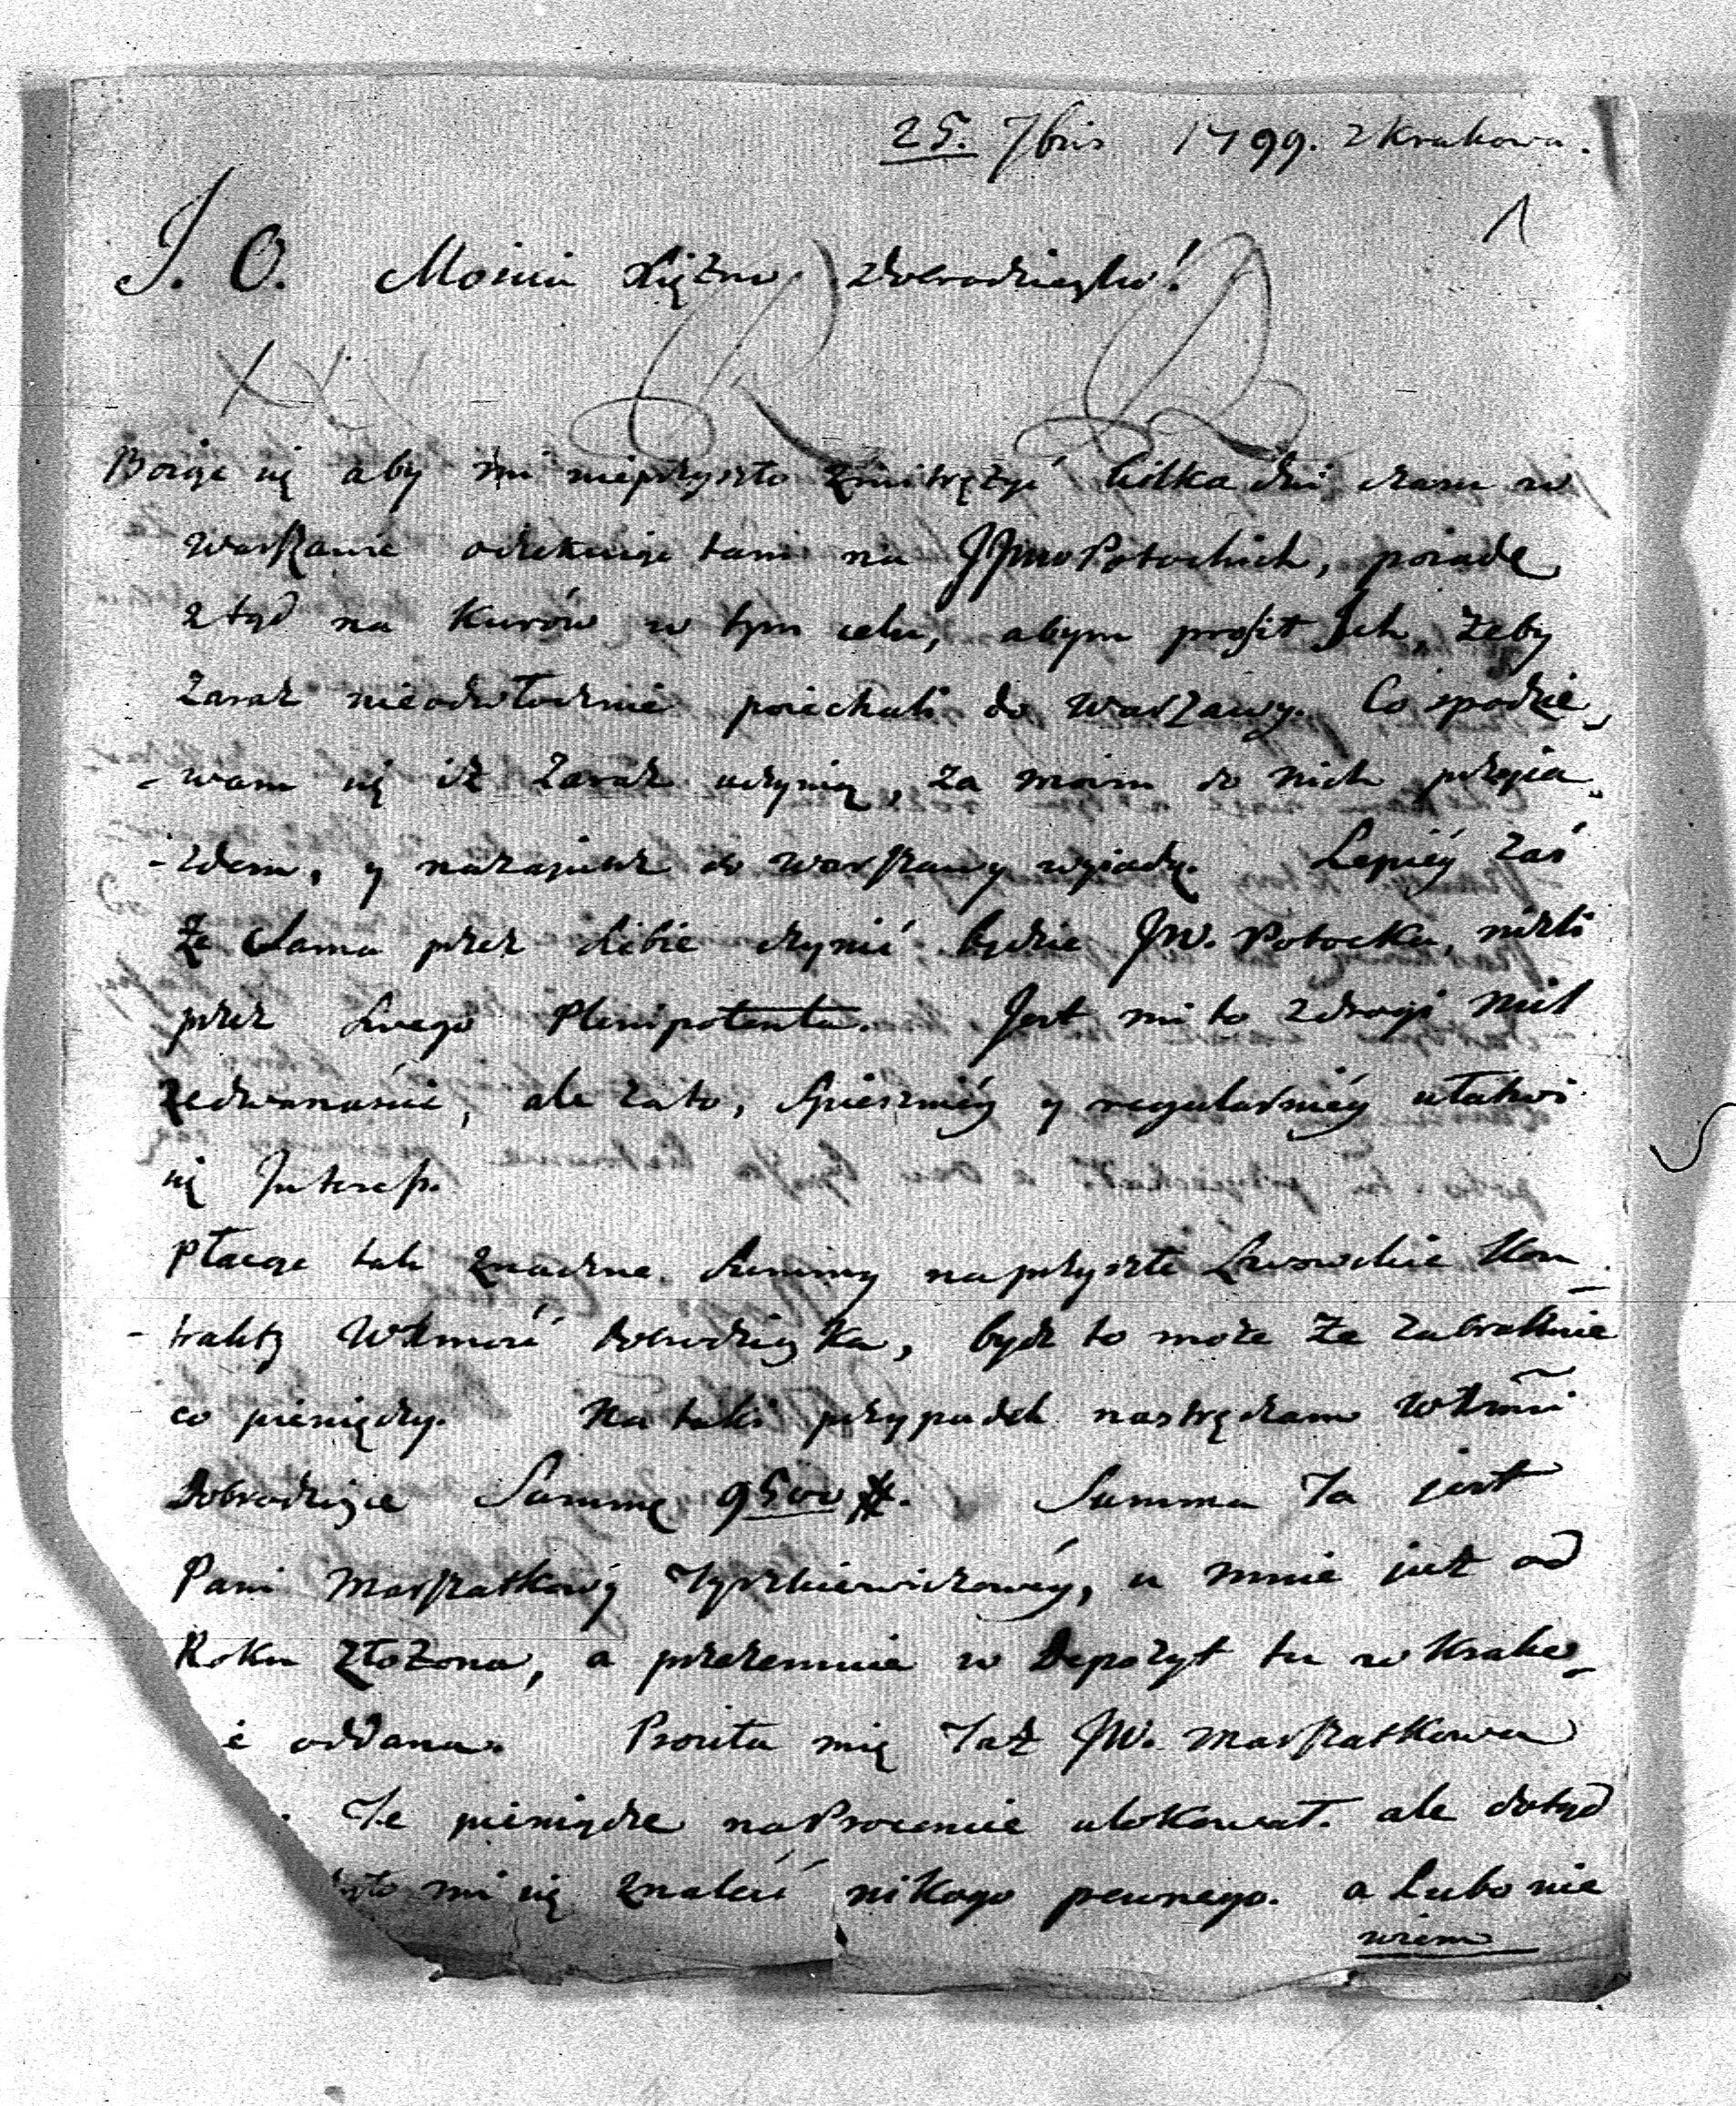 25. 7bris 1799. z Krakowa.
1
J. O. Mościa Xiężno Dobrodzieyko!
Boiąc się aby mi nieprzyszło zmitrężyć kilka dni czasu w
Warszawie oczekuiąc tam na JJmć Potockich, poiadę
ztąd na Kurów w tym celu, abym prosił Ich, żeby
zaraz nieodwłocznie poiechali do Warszawy. Co spodzie-
-wam się iż zaraz uczynią, za moim do nich przyia-
-zdem, y nazajutrz do Warszawy wyiadą. Lepiéy zaś
że sama przez siebie czynić będzie JW. Potocka, niżli
przez swego Plenipotenta. Jest mi to z drogi mil
ze dwanaście, ale zato, spieszniéy y regularniéy ułatwi
się Interess.
Płacąc tak znaczne summy na przyszłe Lwowskie Kon-
-trakty WXmość Dobrodzieyka, bydz to może że zabraknie
co pieniędzy. Na taki przypadek nastręczam WXmci
Dobrodzieyce Summę 9500 #. Summa Ta jest
Pani Marszałkowéy Tyszkiewiczowéy, u mnie już od
Roku złożona, a przezemnie w Depozyt tu w Krako-
e oddana. Prosiła mię Taż JW. Marszałkowa
Te pieniądze na Procencie ulokował. ale dotąd
mi się znaleść nikogo pewnego. a Lubo nie
wiem